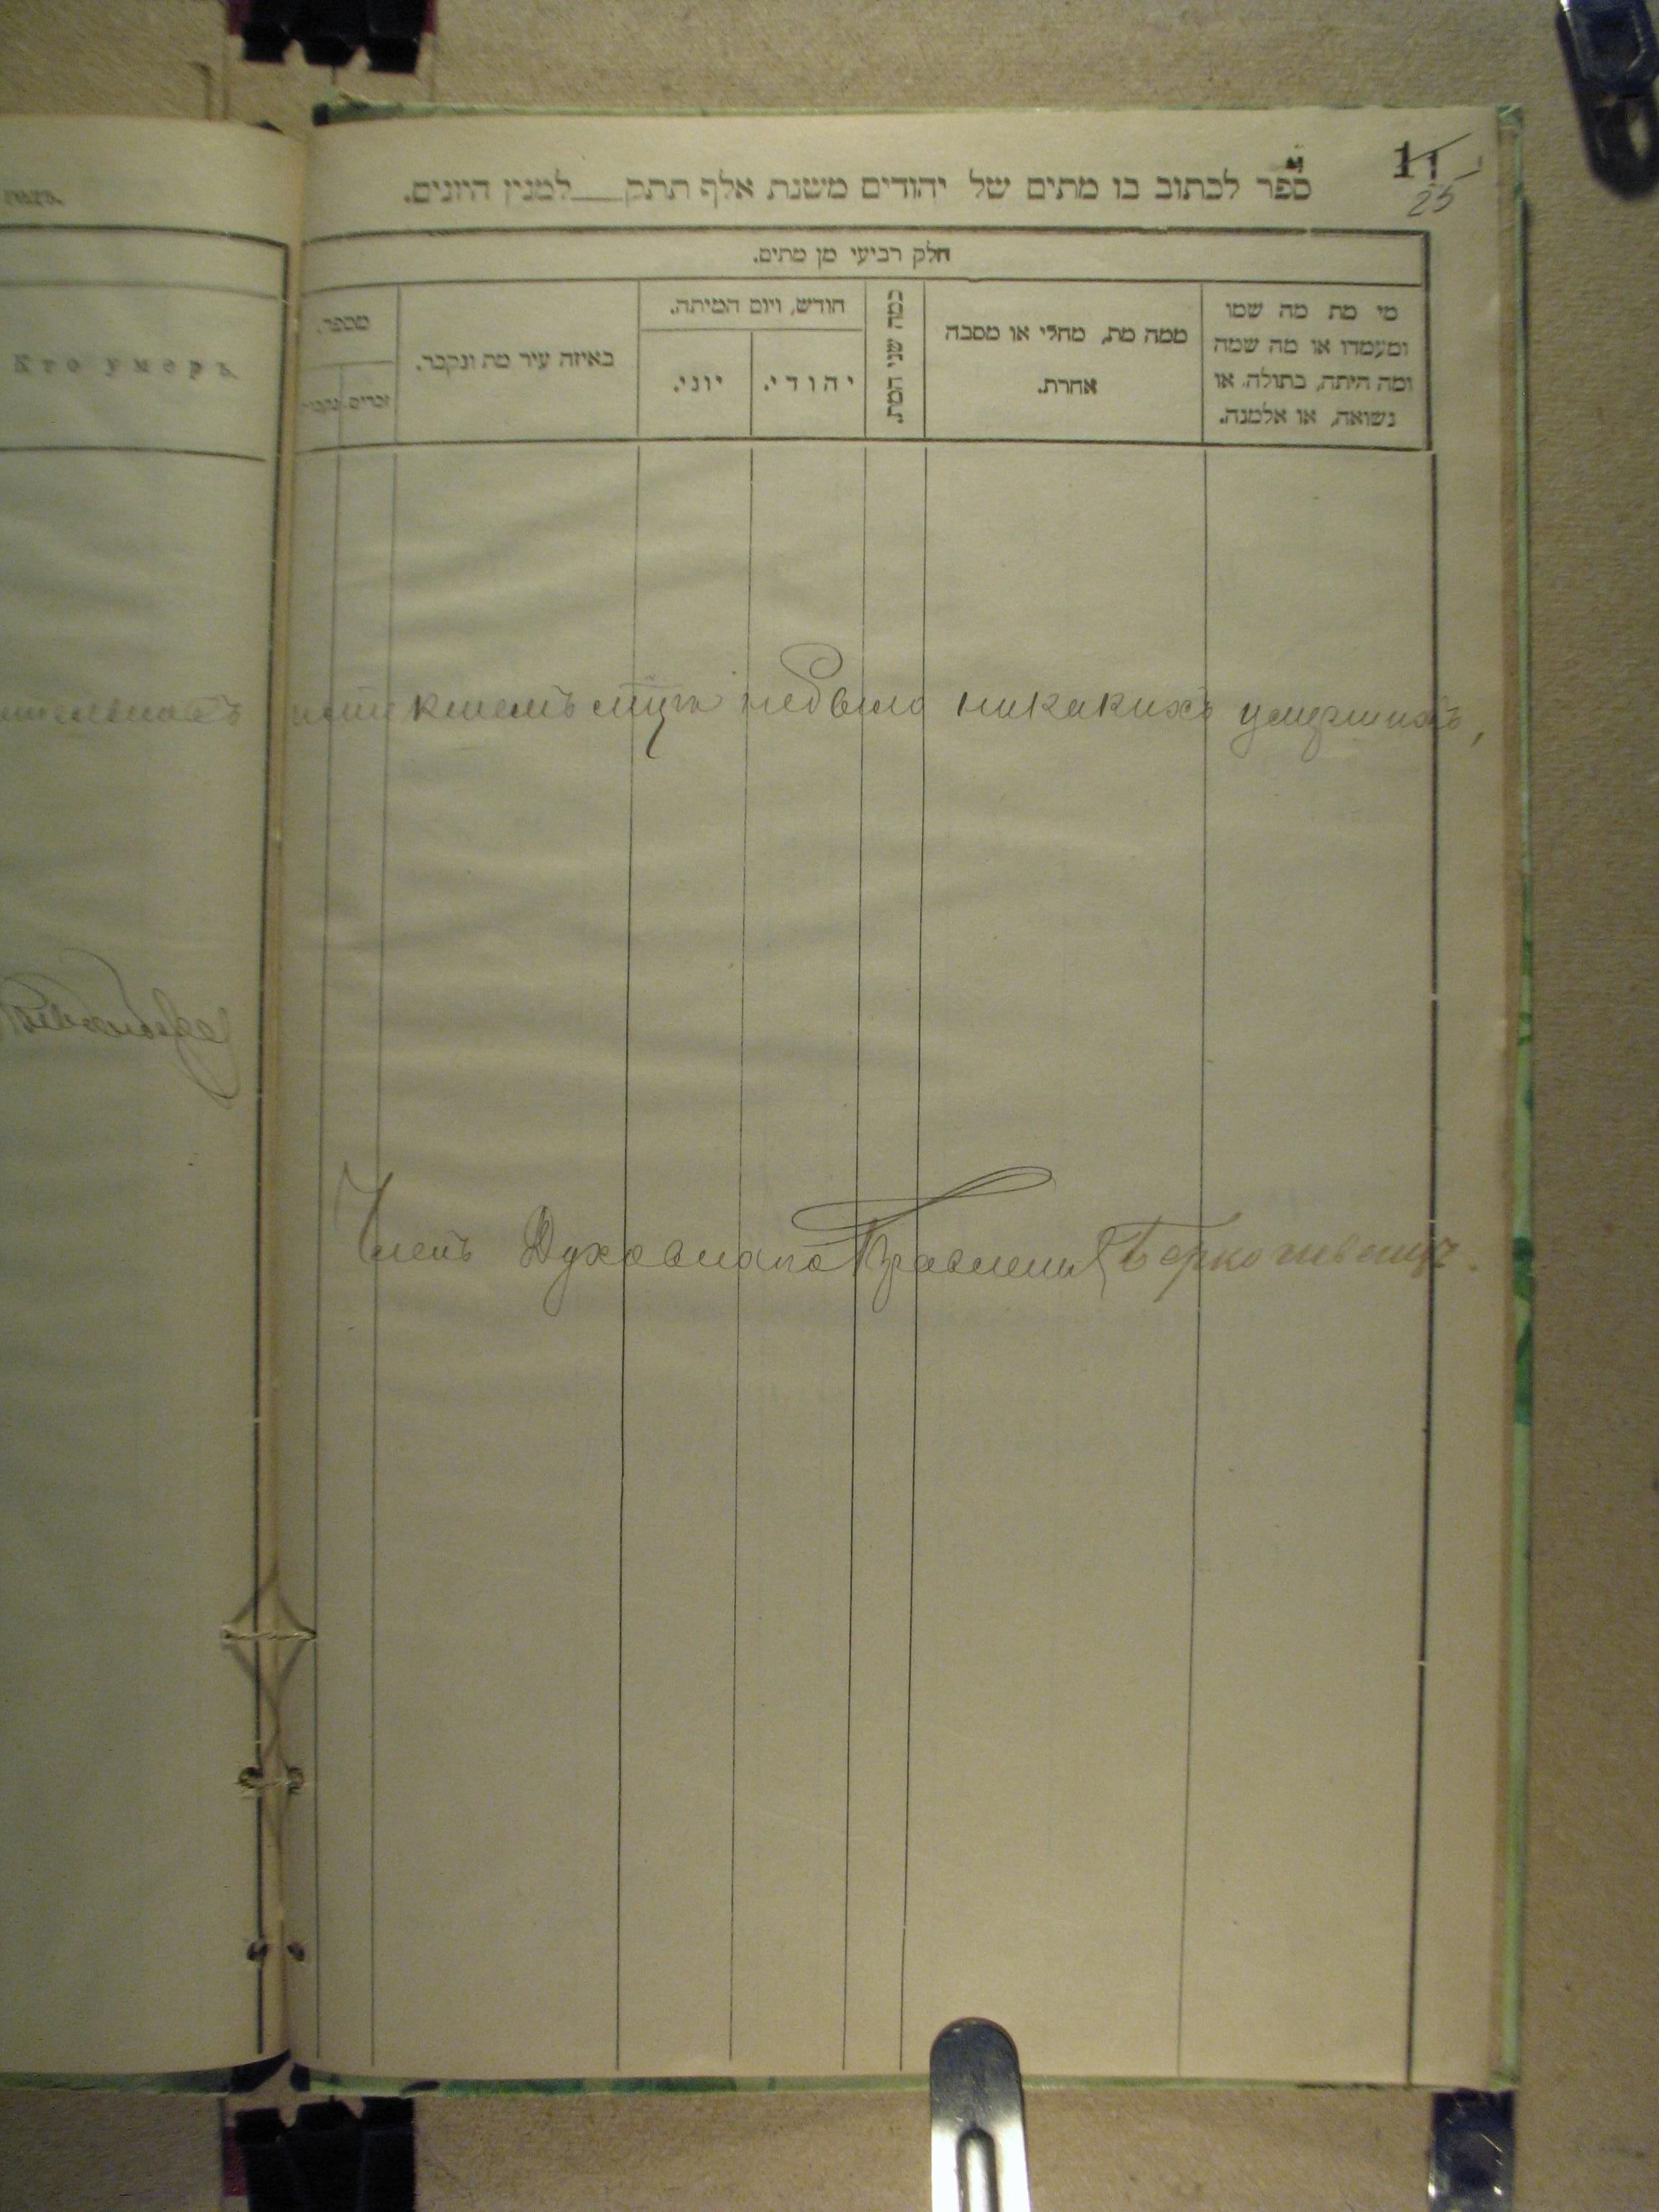 11
25
ספר לכתוב בו מתים של יהודים משנת אלף תתק___למנין היונים.
חלק רביעי מן מתים.
מי מת מה שמו
ומעמדו או מה שמה
ומה היתה, בתולה, או
נשואה, או אלמנה.
ממה מת, מחלי או מסבה
אחרת.
כמה שני המת
חודש, ויום המיתה.
יהודי.
יוני.
באיזה עיר מת ונקבר.
מספר.
זכרים
Кто умеръ
небыло никакихъ умершихъ,
Членъ Духовнаго Правления Берковичъ.